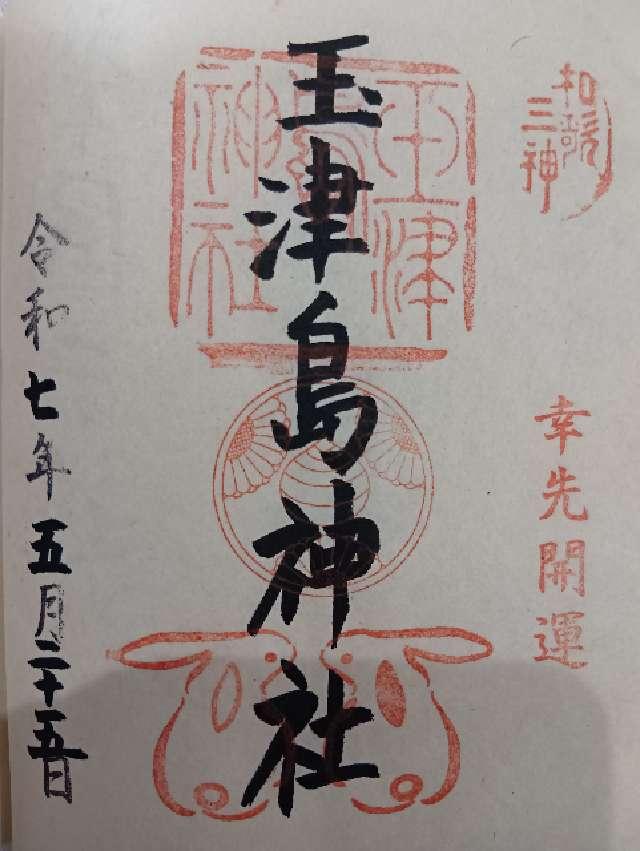 和歌
三神
幸先開運
玉津島神社
玉津島神社
令和七年五月二十五日